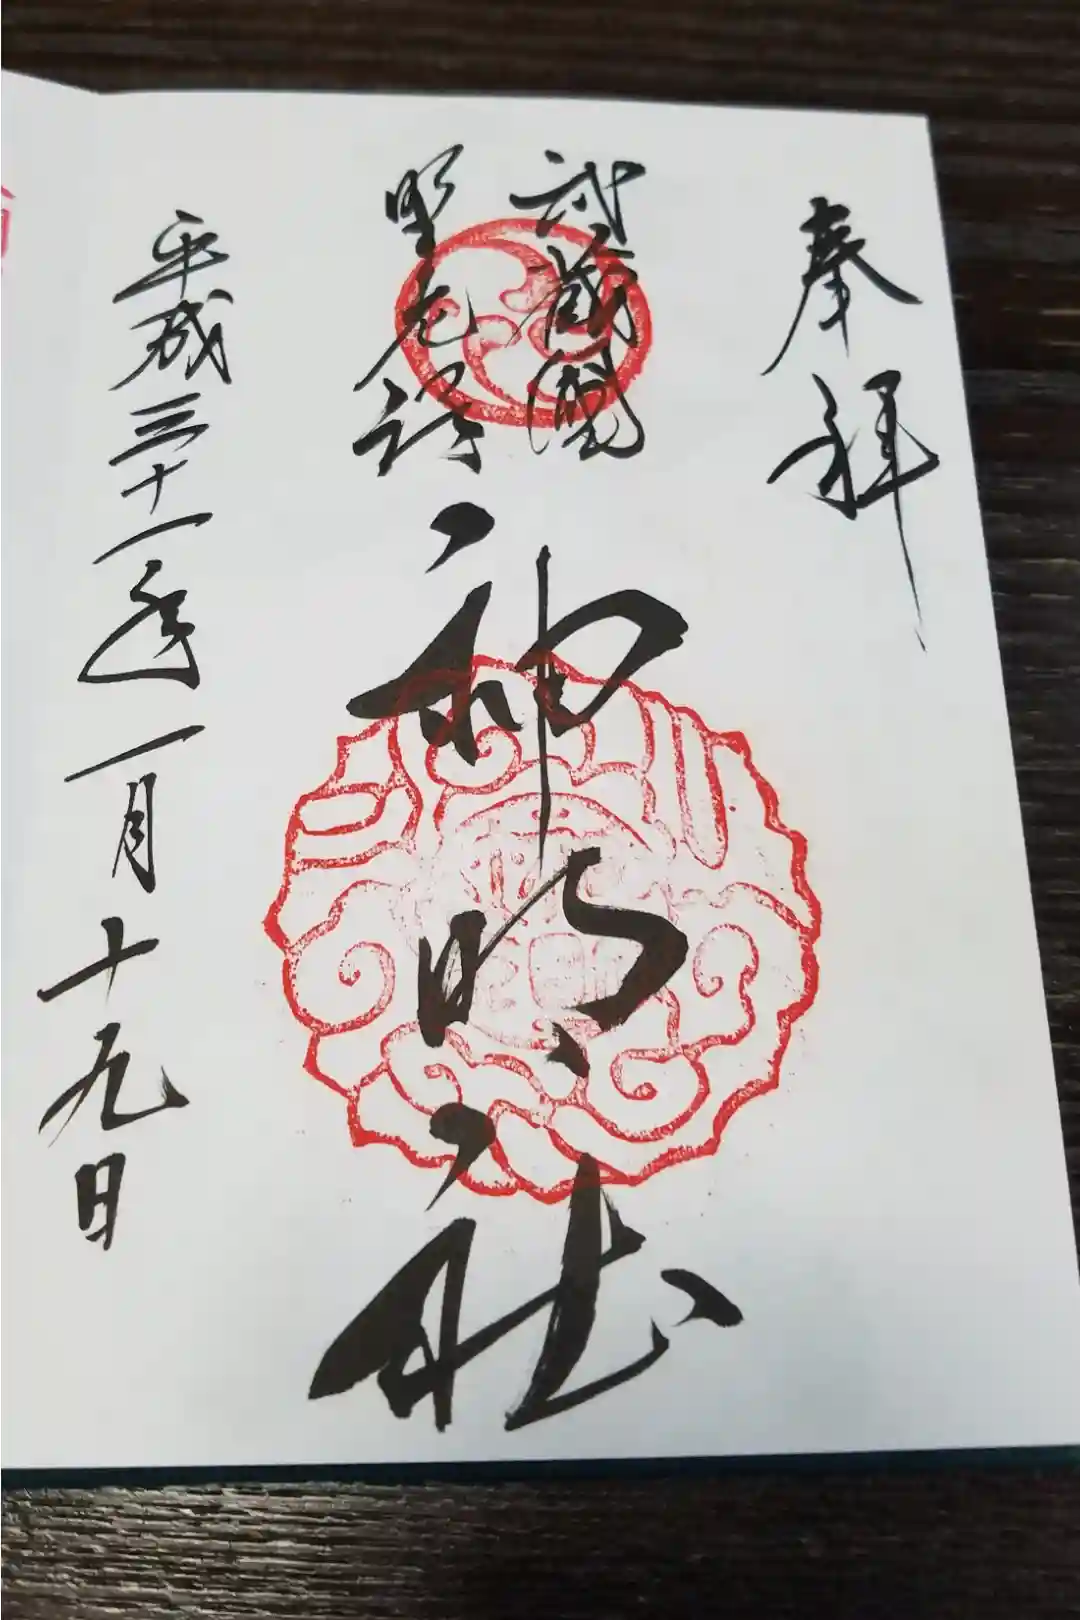 奉拝
武蔵國
野老澤
神明社
平成三十一年一月十九日